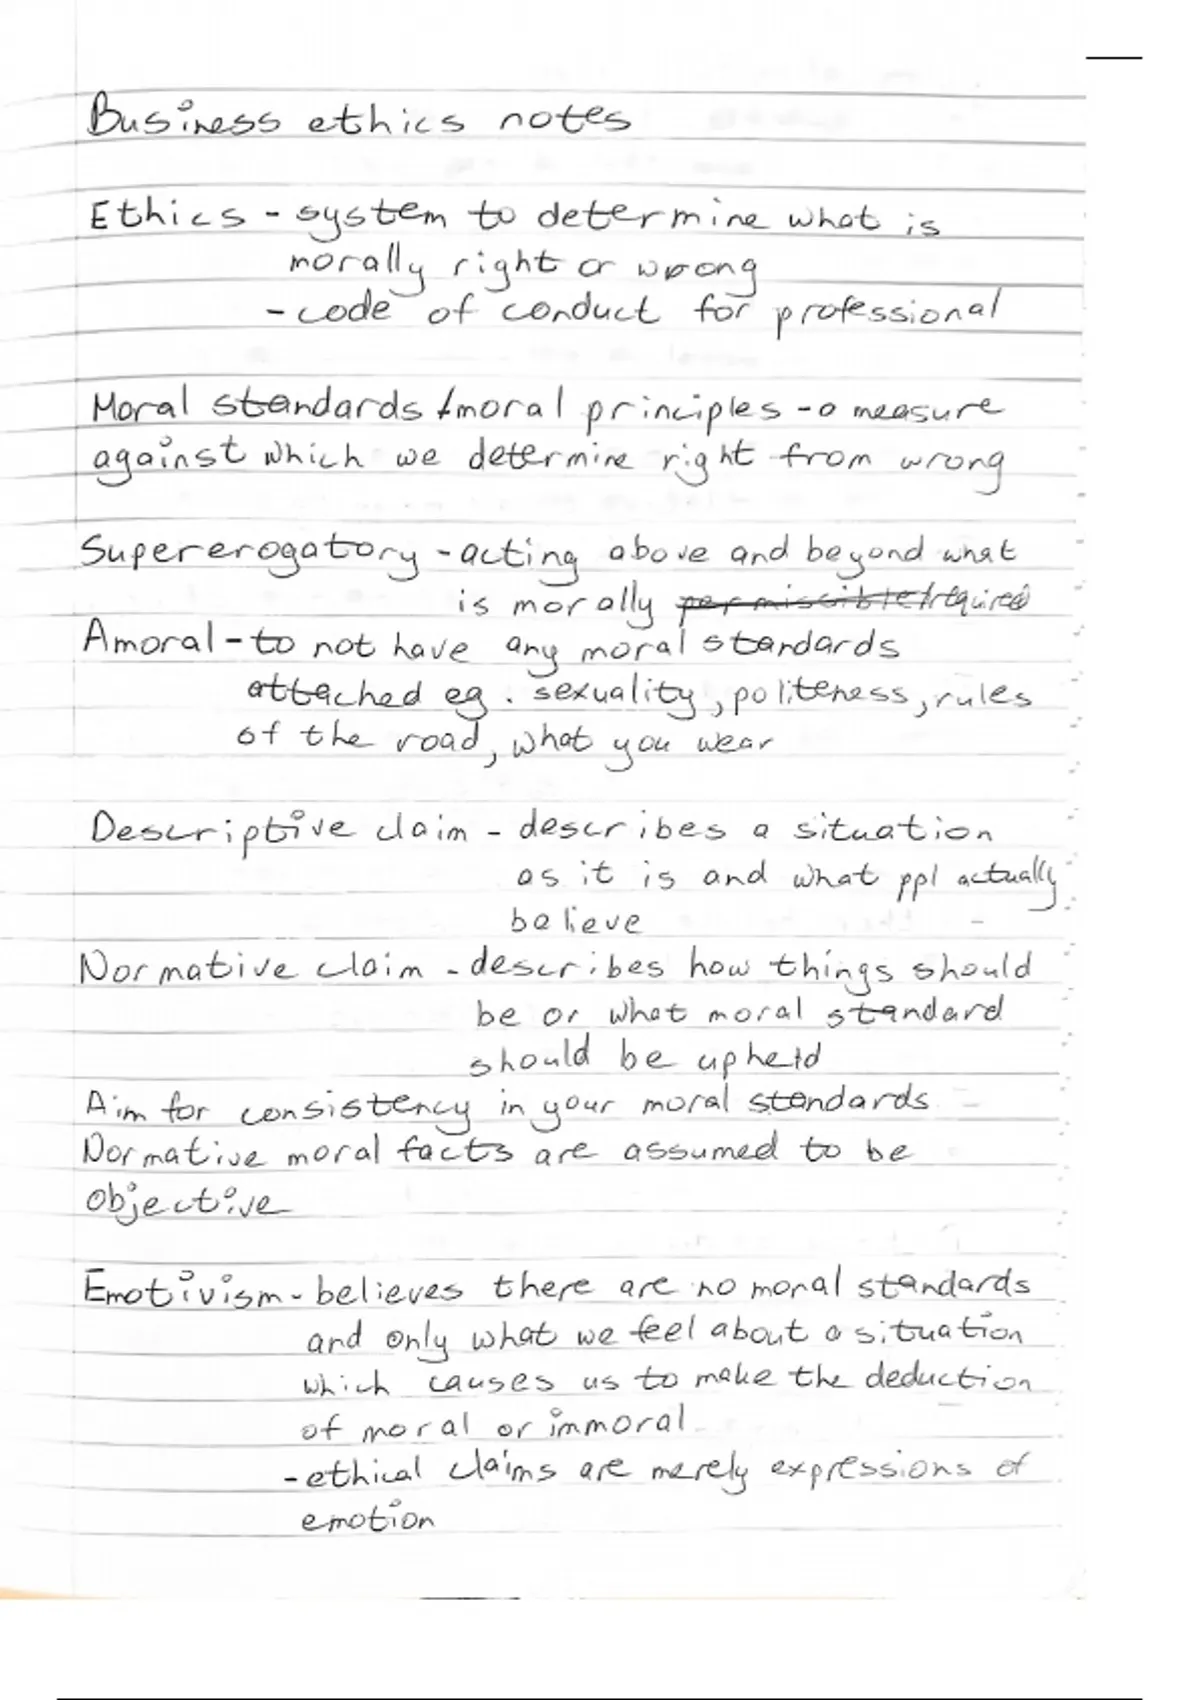 Business ethics notes
Ethics - system to determine what is
morally right or wrong
- code of conduct for professional
Moral standards / moral principles - a measure
against which we determine right from wrong
Supererogatory - acting above and beyond what
is morally ~~permiscible~~/required
Amoral - to not have any moral standards
attached eg. sexuality, politeness, rules
of the road, what you wear
Descriptive claim - describes a situation
as it is and what ppl actually
believe
Normative claim - describes how things should
be or what moral standard
should be upheld
Aim for consistency in your moral standards
Normative moral facts are assumed to be
objective
Emotivism - believes there are no moral standards
and only what we feel about a situation
which causes us to make the deduction
of moral or immoral
- ethical claims are merely expressions of
emotion